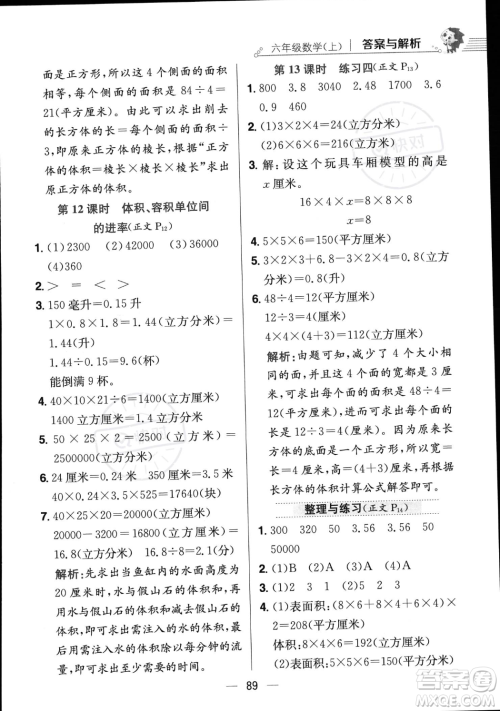 六年级数学(上) 答案与解析
面是正方形，所以 4 个侧面的面积
相等，每个侧面的面积是 84÷4＝
21(平方厘米)。因为剩下的长方体
的高比宽少 3 厘米，所以用 21÷
3，即原来正方体的棱长，再根据
正方体的体积＝棱长×棱长×棱
长或棱长×棱长×棱长，求出
原正方体的体积。
第 12 课时 体积、容积单位间
的进率(正文 P₁₂)
1. (1)2300 (2)42000 (3)36000
(4)360
2. ＞ ＝ ＜ ＞
3. 150 毫升＝0.15 升
1×0.8×1.8＝1.44(立方分米)＝
1.44(升)
1.44÷0.15＝9.6(杯)
能倒满 9 杯。
4. 40×10×21÷6＝1400(立方厘米)
1400 立方厘米＝1.4 立方分米
5. 50×25×2＝2500(立方分米)＝
2500000(立方厘米)
6. 0.24 厘米＝0.24 分米
15×2×0.24÷4＝17640(块)
7. 40×25×20＝20000(立方厘米)
20000－3200＝16800(立方厘米)＝
16.8(立方分米)
16.8÷8＝2.1(分钟)
解析：先求出当鱼缸内的水面高度为
20 厘米时，水与假山石的体积和，
再用水与假山石的体积和减去假
山石的体积求出需注入的水的体
积，最后用需注入水的体积÷每分
钟的流量，就求出至少需要的时间。
第 13 课时 练习四(正文 P₁₃)
1. 800 3.8 3040 2.48 0.36
0.9 460
2. (1)3×2×4＝24(立方分米)
3. 解：设这个玩具车厢模型的高是
x 厘米。
16×4×x＝8×8×8
x＝8
4. 5×5×6＝150(平方厘米)
5. 3×2×3＋6.8－3＝21.8(立方分米)
6. 48÷4＝12(平方厘米)
12÷3＝4(厘米)
4×4×(4＋3)＝112(立方厘米)
解析：由题可知，减少了 4 个大小相
同的面，并且 4 个面的宽都是 3 厘
米，所以一个面的面积是 48÷4＝
12(平方厘米)。所以每个面的长是
12÷3＝4(厘米)。因为原来长方
体的底面是一个正方形，所以原来
长方体的高是 4＋3＝7(厘米)，根据
长方体的体积计算公式解答即可。
整理与练习(正文 P₁₄)
1. 300 320 50 3.56 3.56 50
50000
2. (1)A (2)C (3)A
3. 15×2÷3＝10(厘米)
4. (1)表面积：(8×6＋8×4＋6×4)
×2＝208(平方厘米)
体积：8×6×4＝192(立方厘米)
(2)表面积：5×5×6＝150(平方分米)
89